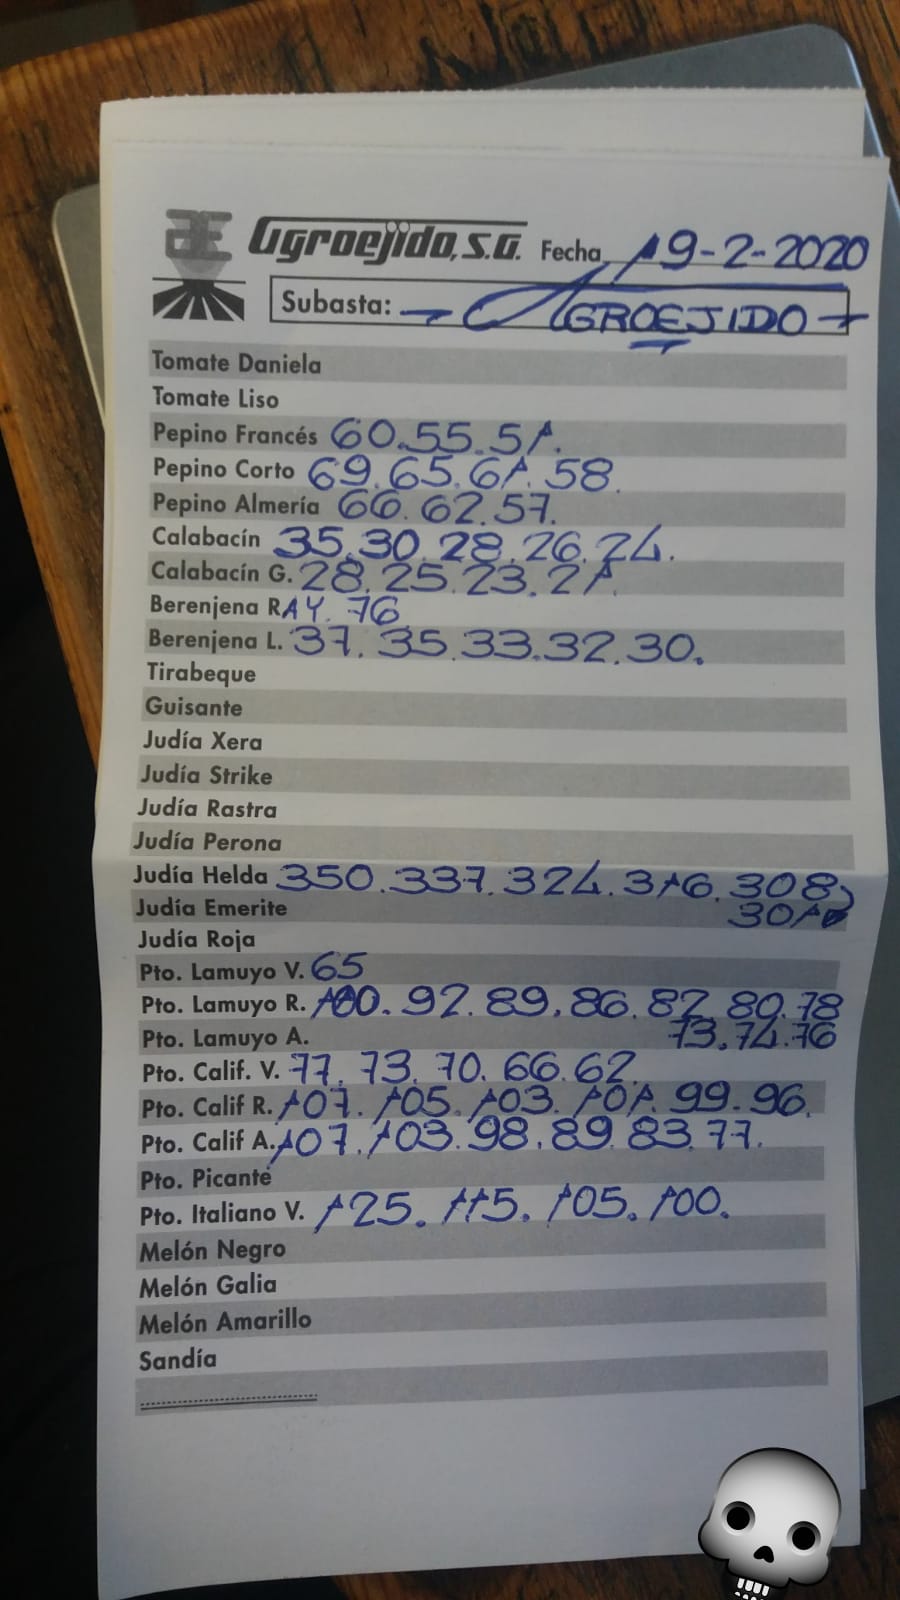 Agroejido, S.A. Fecha 19-2-2020
Subasta: - AGROEJIDO -
Tomate Daniela
Tomate Liso
Pepino Francés 60.55.51.
Pepino Corto 69.65.61.58.
Pepino Almería 66.62.57.
Calabacín 35.30.28.26.24.
Calabacín G. 28.25.23.21.
Berenjena RAY. 76
Berenjena L. 37.35.33.32.30.
Tirabeque
Guisante
Judía Xera
Judía Strike
Judía Rastra
Judía Perona
Judía Helda 350.337.324.316.308
Judía Emerite 301
Judía Roja
Pto. Lamuyo V. 65
Pto. Lamuyo R. 100.92.89.86.82.80.78
Pto. Lamuyo A. 73.74.76
Pto. Calif. V. 77.73.70.66.62
Pto. Calif R. 107.105.103.101.99-96.
Pto. Calif A. 107.103.98.89.83.77.
Pto. Picante
Pto. Italiano V. 125.115.105.100.
Melón Negro
Melón Galia
Melón Amarillo
Sandía